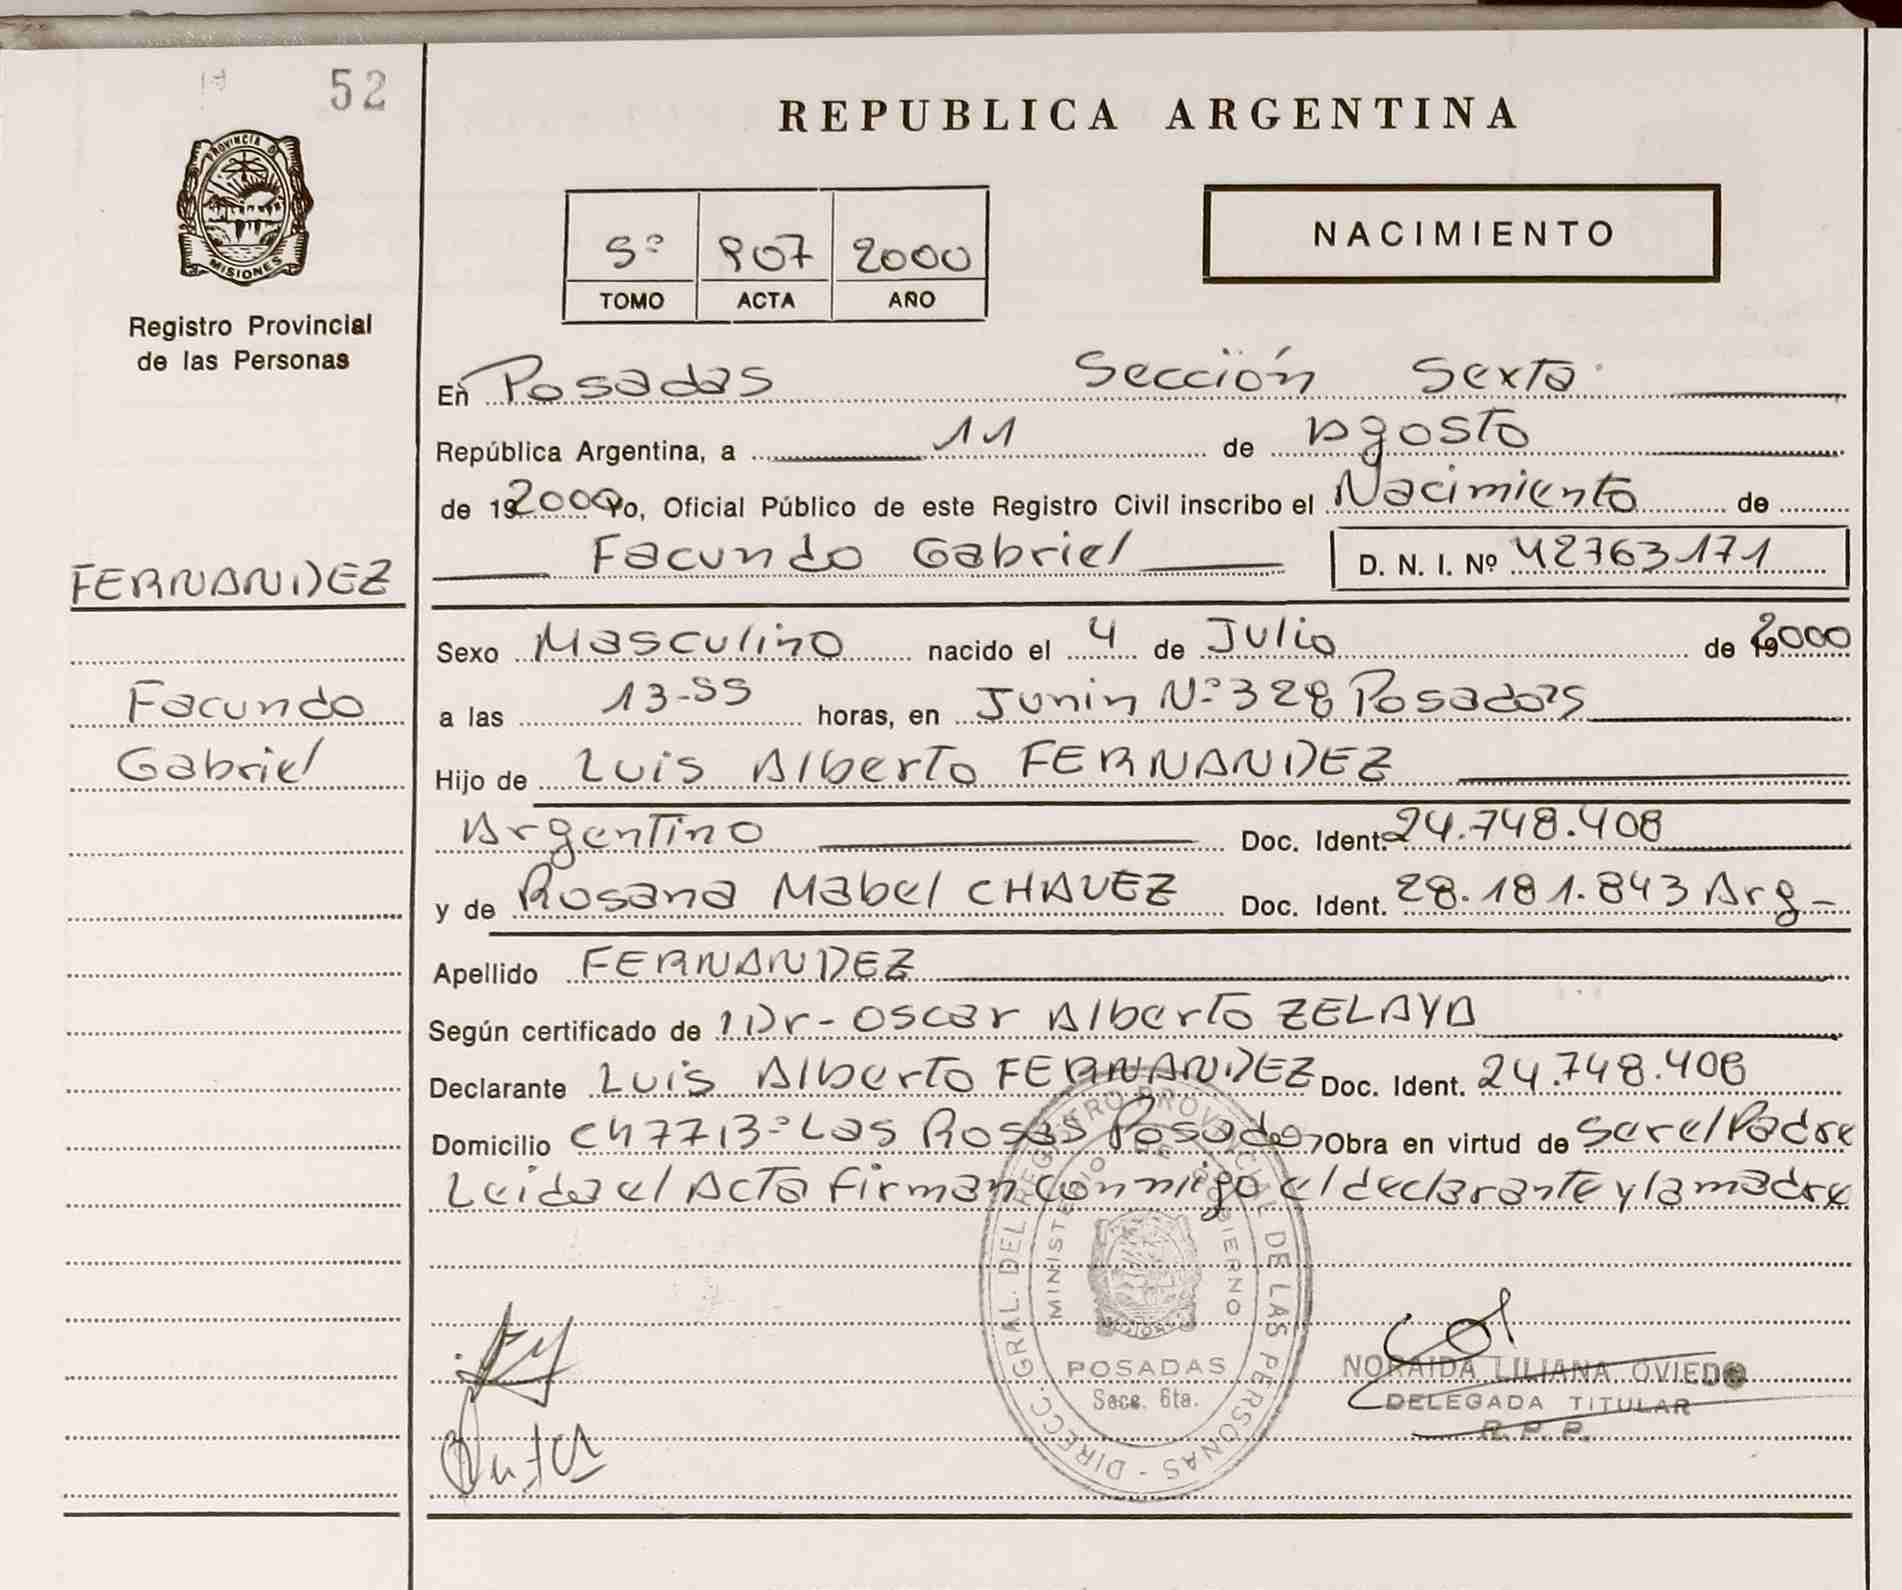 52
REPUBLICA ARGENTINA
PROVINCIA D
MISIONES
Registro Provincial
de las Personas
5º 907 2000
TOMO ACTA AÑO
NACIMIENTO
En Posadas Sección Sexta
República Argentina, a 11 de Agosto
de 19 2000 Yo, Oficial Público de este Registro Civil inscribo el Nacimiento de
Facundo Gabriel D. N. I. Nº 42763171
FERNANDEZ
Facundo
Gabriel
Sexo Masculino nacido el 4 de Julio de 19 2000
a las 13-55 horas, en Junin Nº 328 Posadas
Hijo de Luis Alberto FERNANDEZ
Argentino Doc. Ident. 24.748.408
y de Rosana Mabel CHAVEZ Doc. Ident. 28.181.843 Arg-
Apellido FERNANDEZ
Según certificado de Dr- Oscar Alberto ZELAYA
Declarante Luis Alberto FERNANDEZ Doc. Ident. 24.748.408
Domicilio Las Rosas Posadas, Obra en virtud de Ser el Padre
Leida el Acta Firman conmigo el declarante y la madre
DIRECC. GRAL. DEL REGISTRO PROVINCIAL DE LAS PERSONAS -
MINISTERIO DE GOBIERNO
POSADAS
Secc. 6ta.
NORAIDA LILIANA OVIEDO
DELEGADA TITULAR
R. P. P.